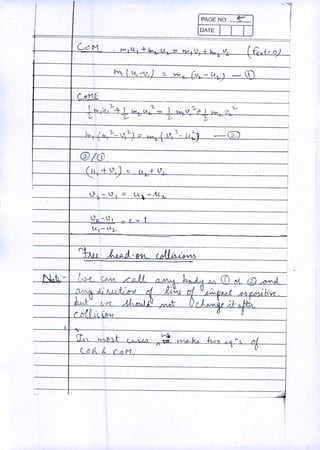 PAGE NO. 5
DATE
CoM m₁u₁ + m₂u₂ = m₁v₁ + m₂v₂ (Fext=0)
m₁(u₁-v₁) = m₂(v₂-u₂) — ①
CoME
½ m₁u₁² + ½ m₂u₂² = ½ m₁v₁² + ½ m₂v₂²
m₁(u₁²-v₁²) = m₂(v₂²-u₂²) — ②
②/①
(u₁+v₁) = u₂+v₂
v₂-v₁ = u₁-u₂
v₂-v₁ / u₁-u₂ = e = 1
head-on collisions
Note:- We can call any body as ① or ② and
any direction of line of impact as positive.
but we should not change it after
collision.
In most cases, we make two eqⁿs of
COR & CoM.